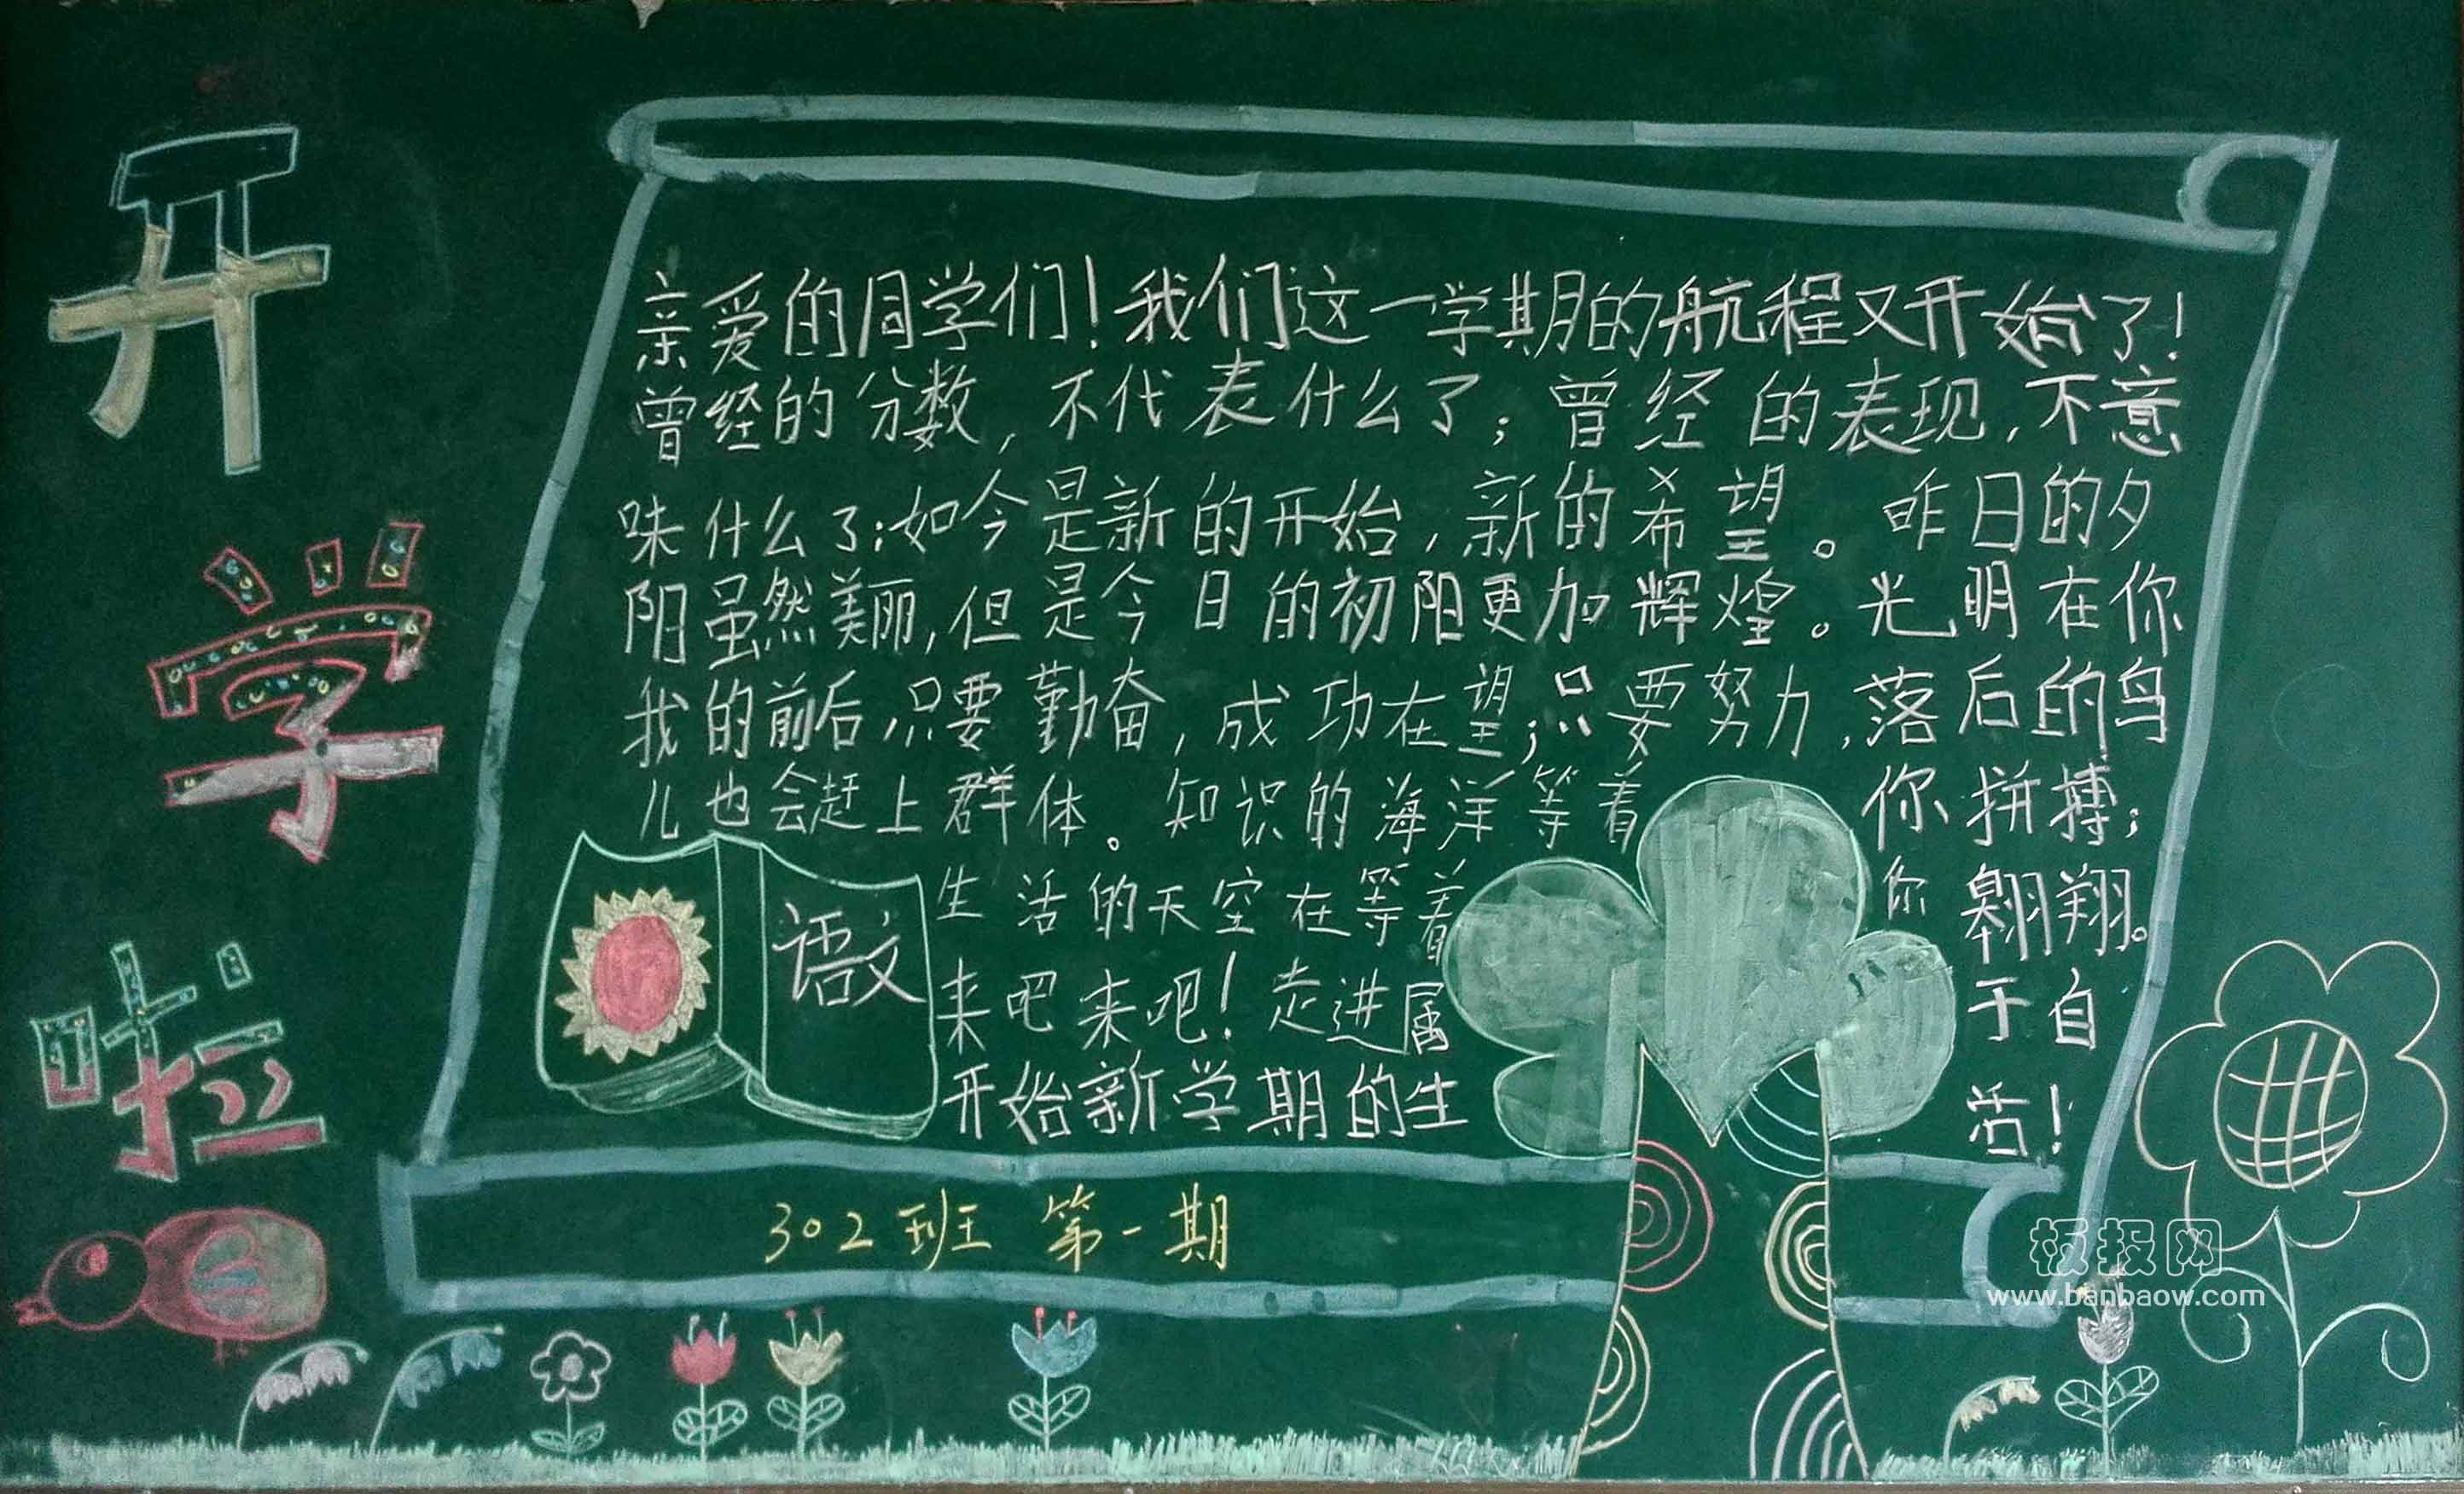 开学啦
亲爱的同学们！我们这一学期的航程又开始了！
曾经的分数，不代表什么了；曾经的表现，不意
味什么了；如今是新的开始，新的希望。昨日的夕
阳虽然美丽，但是今日的初阳更加辉煌。光明在你
我的前后，只要勤奋，成功在望；只要努力，落后的鸟
儿也会赶上群体。知识的海洋等着你拼搏；
生活的天空在等着你翱翔。
来吧来吧！走进属于自
开始新学期的生活！
语文
302班 第一期
板报网
www.banbaow.com